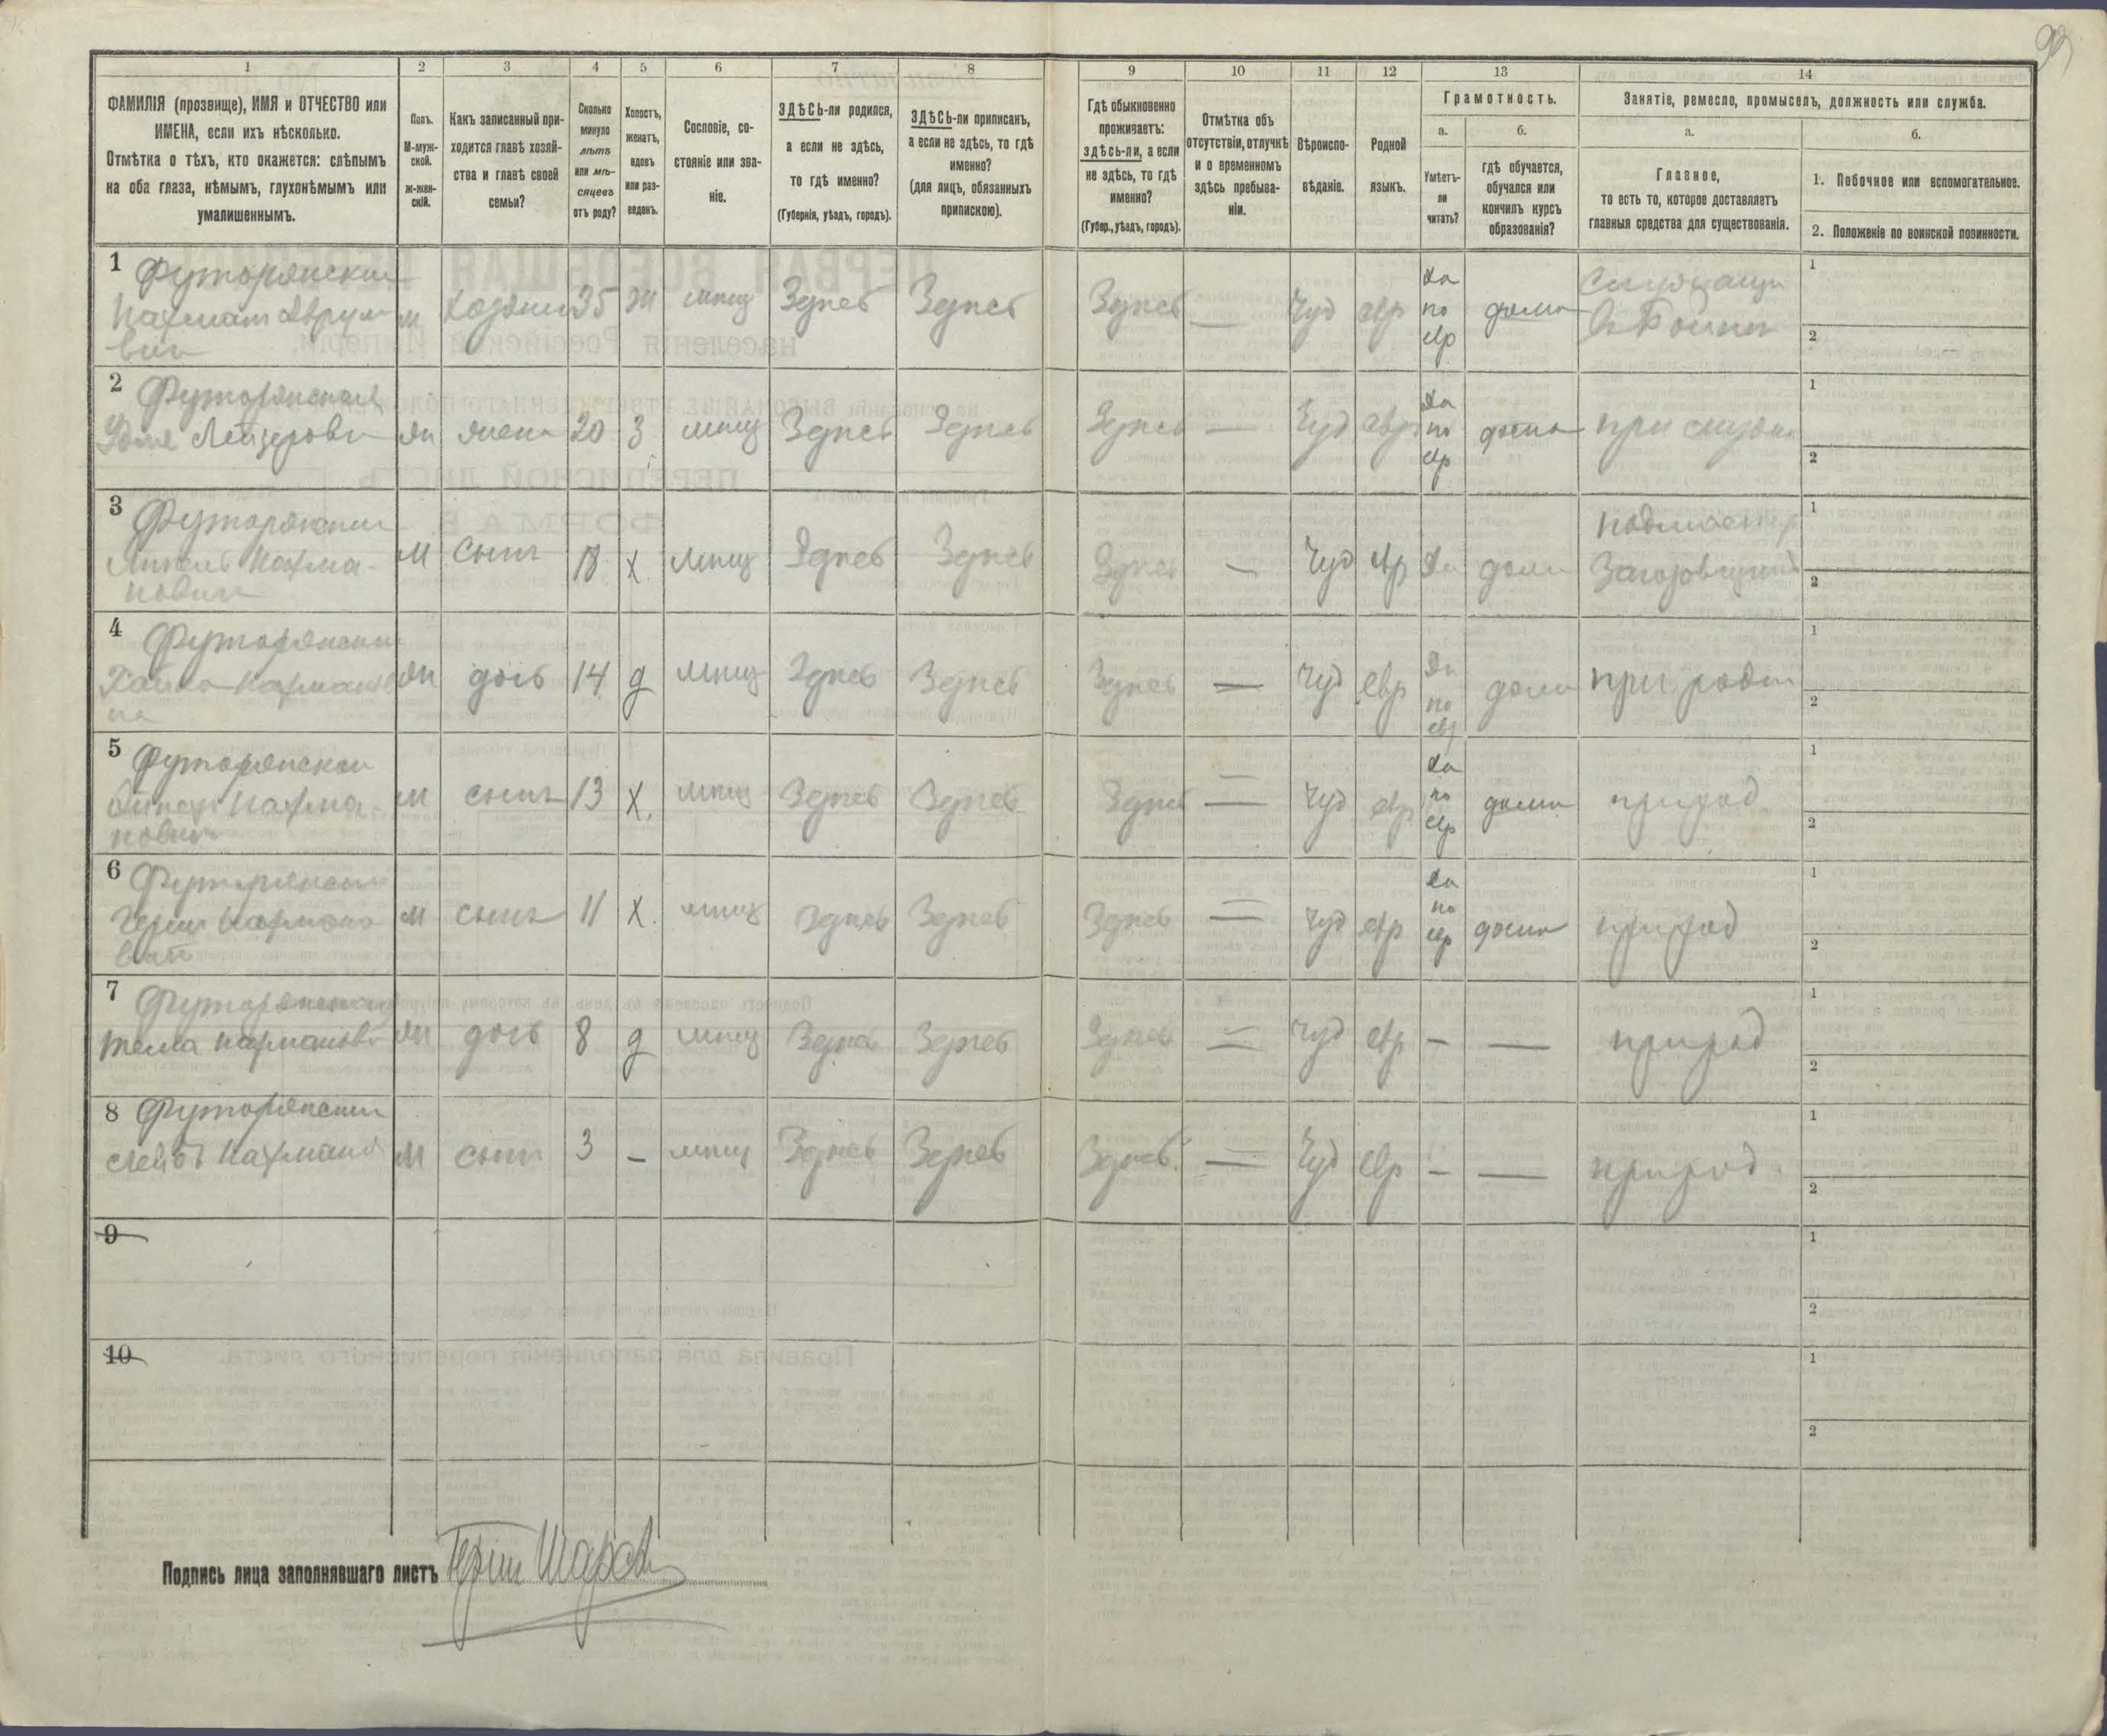 99
1 2 3 4 5 6 7 8 9 10 11 12 13 14
ФАМИЛІЯ (прозвище), ИМЯ и ОТЧЕСТВО или
ИМЕНА, если ихъ нѣсколько.
Отмѣтка о тѣхъ, кто окажется: слѣпымъ
на оба глаза, нѣмымъ, глухонѣмымъ или
умалишеннымъ.
Полъ.
М-муж-
ской.
Ж-жен-
скій.
Какъ записанный при-
ходится главѣ хозяй-
ства и главѣ своей
семьи?
Сколько
минуло
лѣтъ
или мѣ-
сяцевъ
отъ роду?
Холостъ,
женатъ,
вдовъ
или раз-
веденъ.
Сословіе, со-
стояніе или зва-
ніе.
ЗДѢСЬ-ли родился,
а если не здѣсь,
то гдѣ именно?
(Губернія, уѣздъ, городъ).
ЗДѢСЬ-ли приписанъ,
а если не здѣсь, то гдѣ
именно?
(для лицъ, обязанныхъ
припискою).
Гдѣ обыкновенно
проживаетъ:
здѣсь-ли, а если
не здѣсь, то гдѣ
именно?
(Губер., уѣздъ, городъ).
Отмѣтка объ
отсутствіи, отлучкѣ
и о временномъ
здѣсь пребыва-
ніи.
Вѣроиспо-
вѣданіе.
Родной
языкъ.
Грамотность.
а.
Умѣетъ-
ли
читать?
б.
гдѣ обучается,
обучался или
кончилъ курсъ
образованія?
Занятіе, ремесло, промыселъ, должность или служба.
а.
Главное,
то есть то, которое доставляетъ
главныя средства для существованія.
б.
1. Побочное или вспомогательное.
2. Положеніе по воинской повинности.
1 Футорянский
Нахман Аврумо
вич
м 35 ж мещ Здесь Здесь Здесь — Iуд евр
да
по
евр
дома
1
2
2 Футорянская
Лейзеров
жн жена 20 З мещ Здесь Здесь Здесь — Iуд евр
да
по
евр
дома при муже
1
2
3 Футорянский
Нахма-
нович
м сынъ 18 х мещ Здесь Здесь Здесь — Iуд евр да дома
1
2
4 Футорянская
Нахманов
на
жн дочь 14 д мещ Здесь Здесь Здесь — Iуд евр
да
по
евр
дома при род
1
2
5 Футорянский
Нахма-
нович
м сынъ 13 х. мещ Здесь Здесь Здесь — Iуд евр
да
по
евр
дома при род
1
2
6 Футорянский
Герш Нахмано
вич
м сынъ 11 х. мещ Здесь Здесь Здесь — Iуд евр
да
по
евр
дома при род
1
2
7 Футорянская
Нахманов
жн дочь 8 д мещ Здесь Здесь Здесь — Iуд евр — — при род
1
2
8 Футорянский
Лейбъ Нахманов
м сынъ 3 — мещ Здесь Здесь Здесь — Iуд евр — — при род.
1
2
9
1
2
10
1
2
Подпись лица заполнявшаго листъ